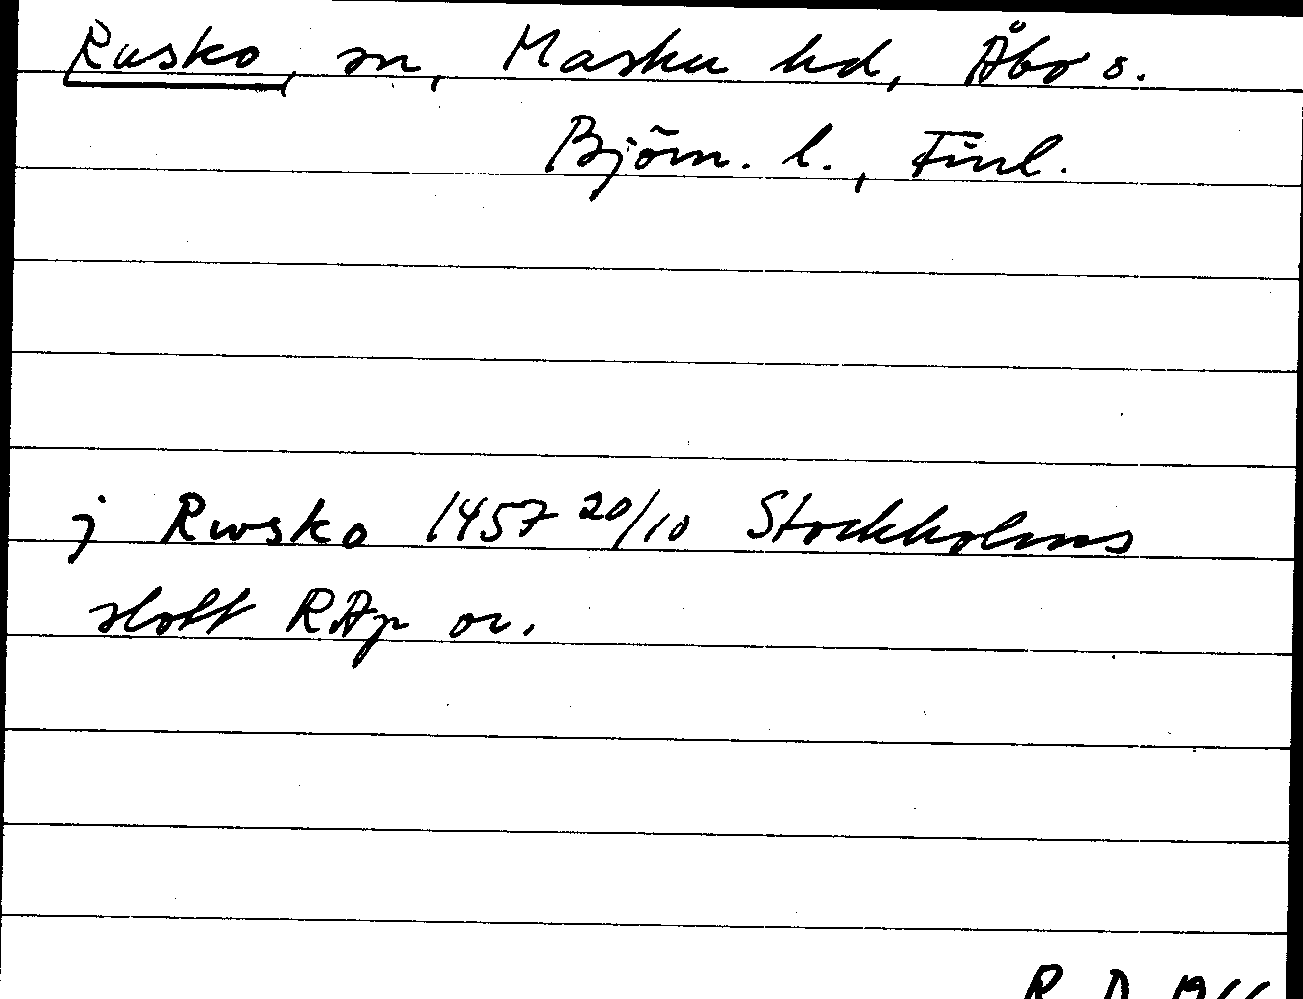 Rusko, sn, Masku hd, Åbo s.
Björn. l., Finl.
j Rwsko 1457 20/10 Stockholms
slott RAp or.
R D 1966